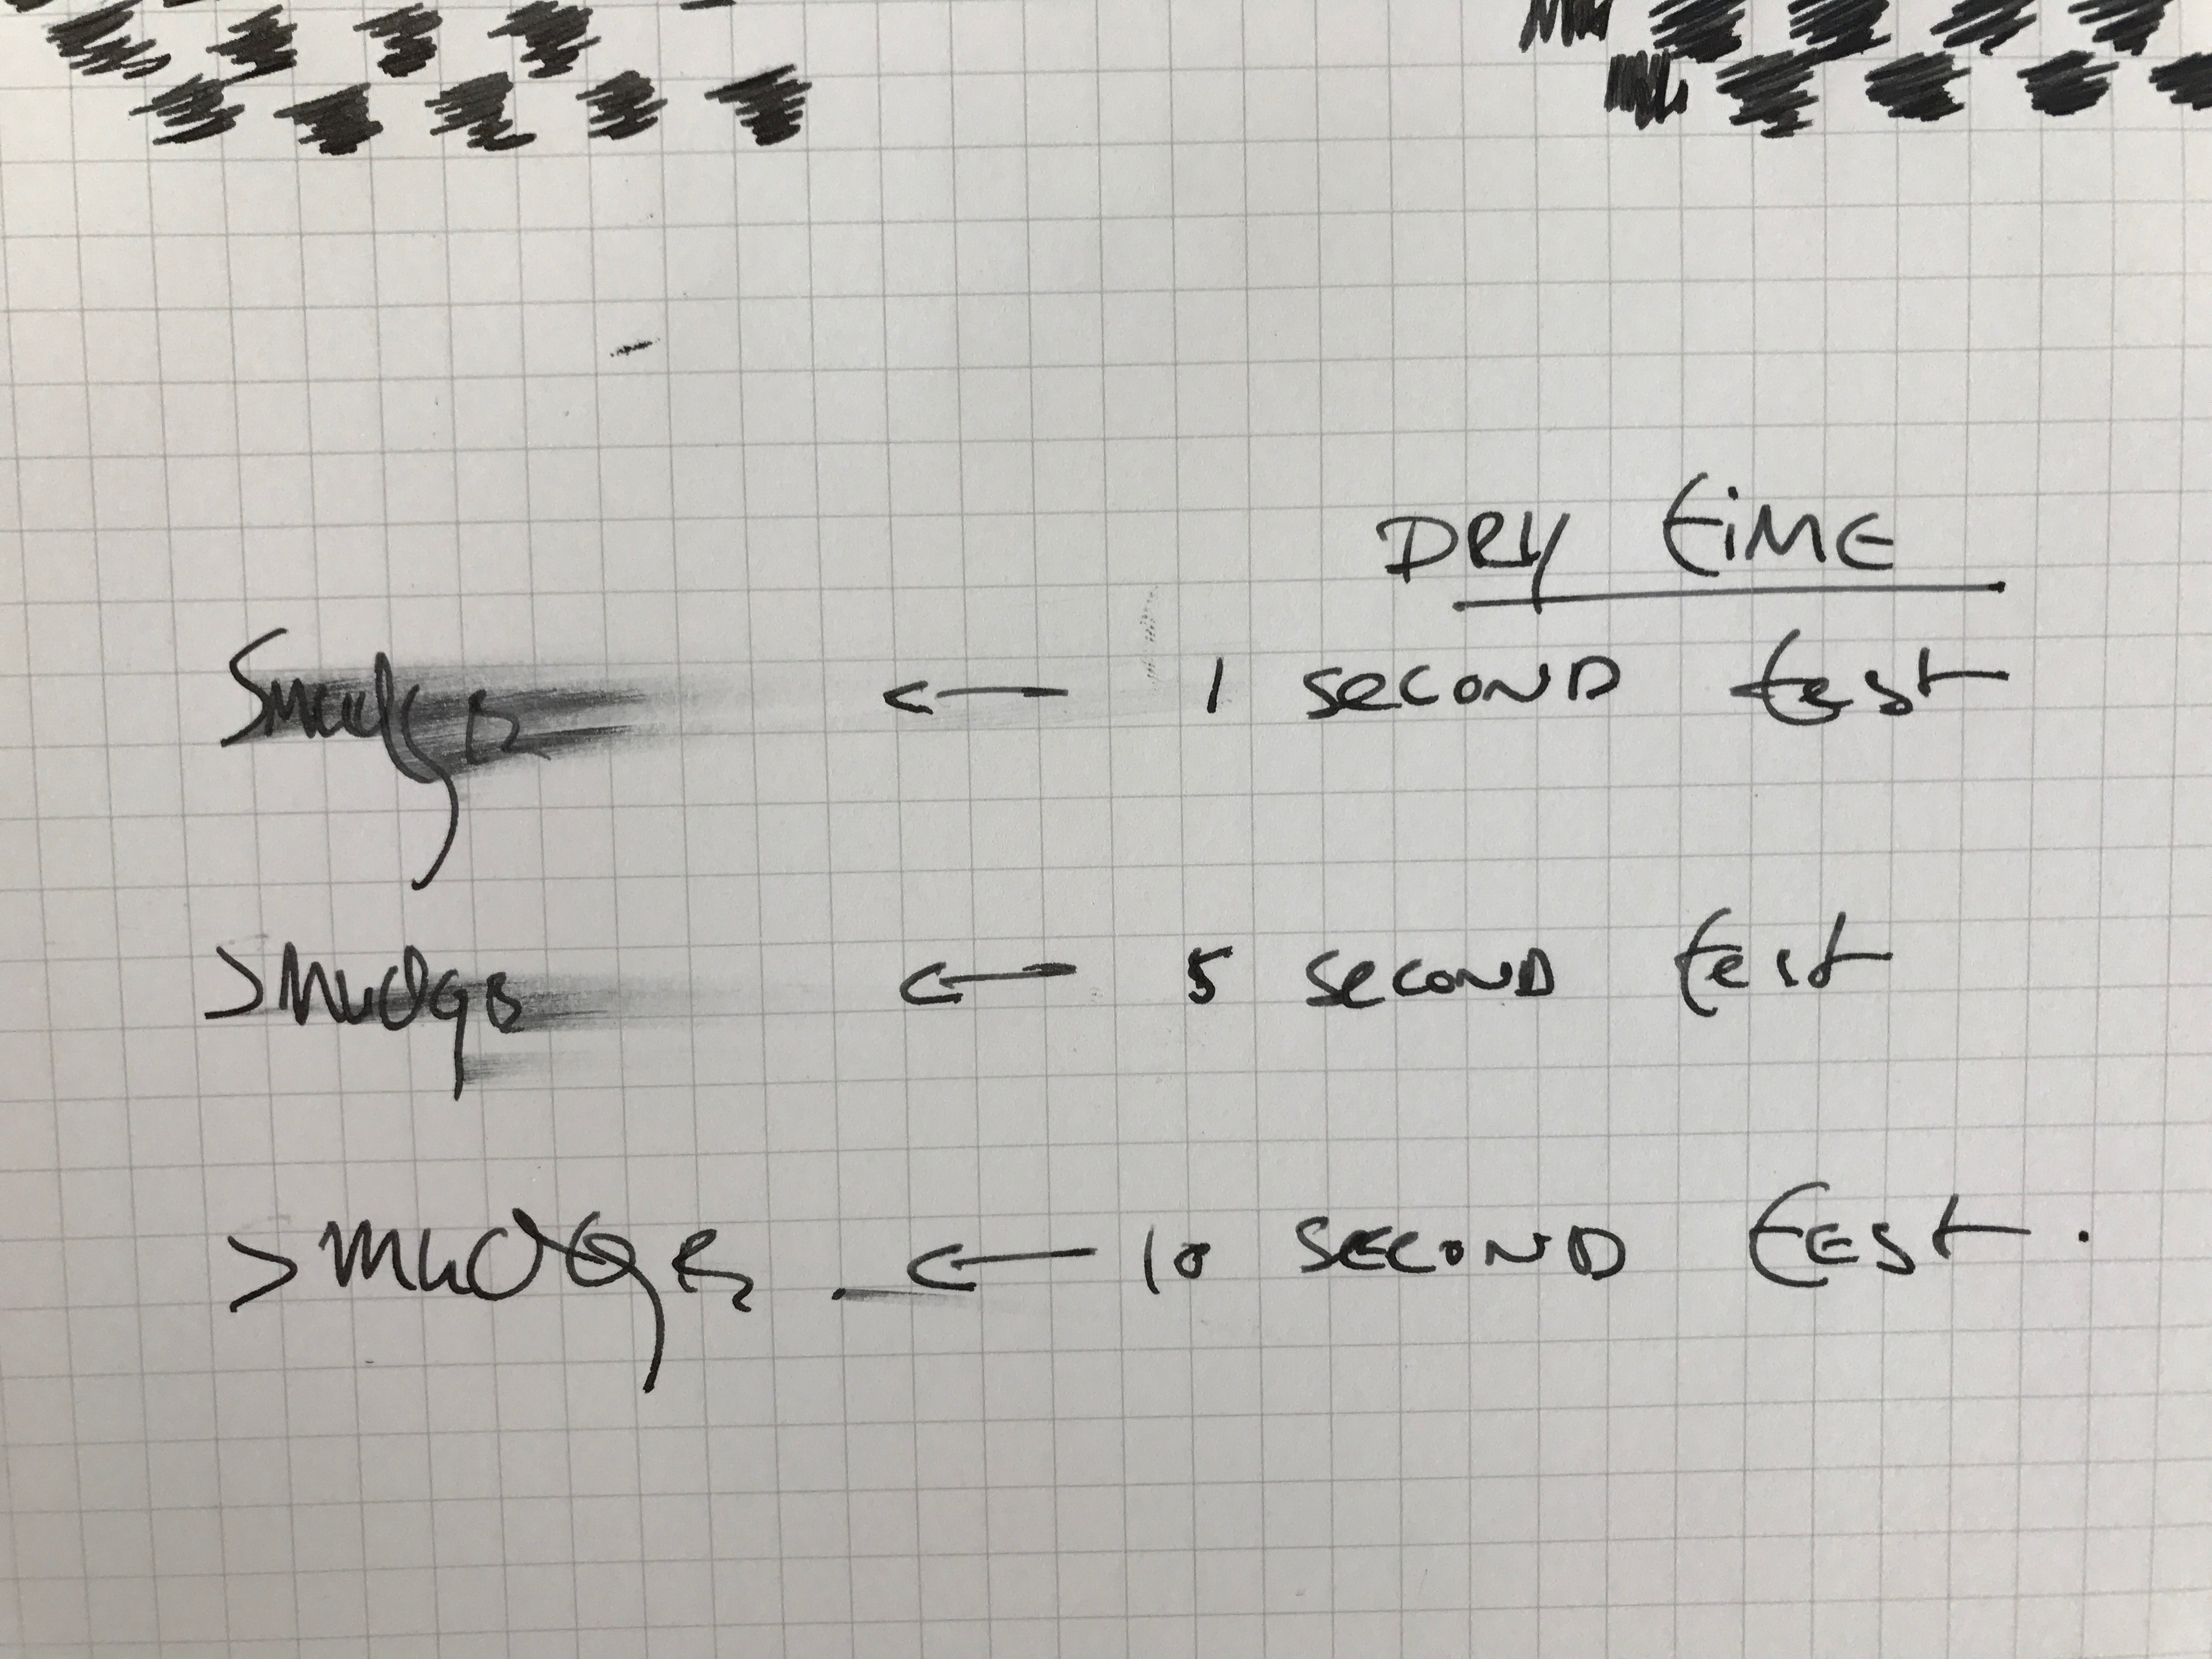 DRY tiME
Smudge ← 1 Second test
Smudge ← 5 Second test
SmudGe. ← 10 SECOND tEst.